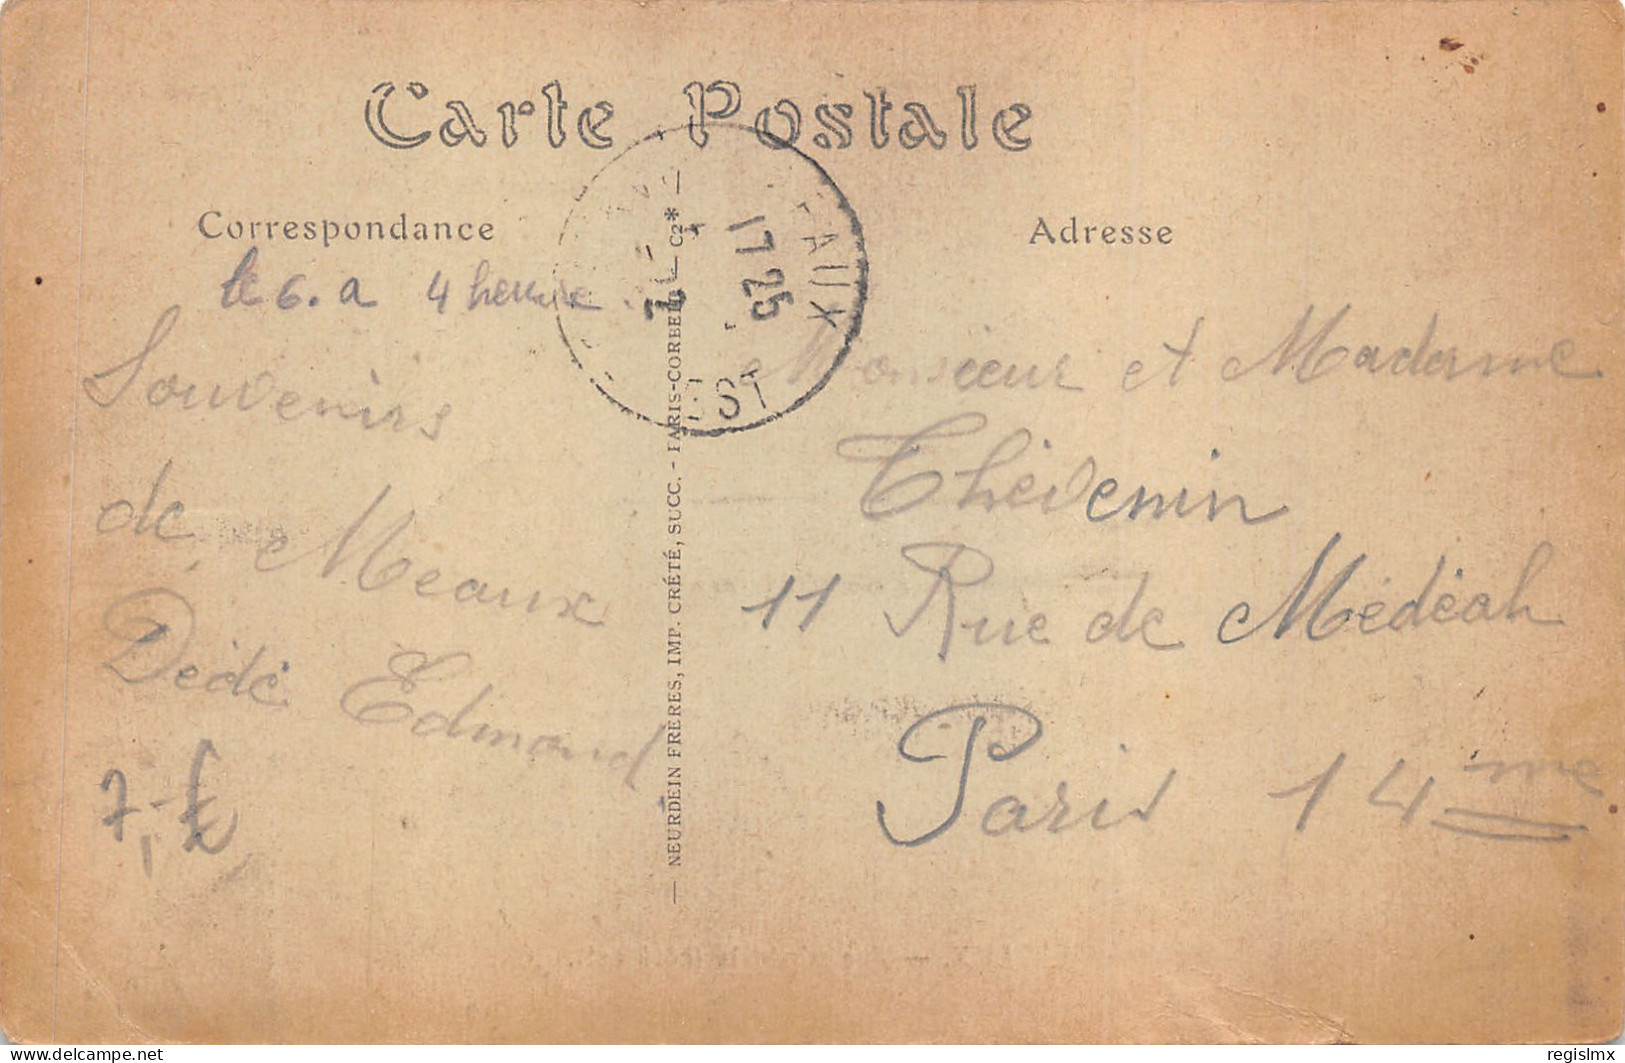 Carte Postale
Correspondance
Adresse
le 6. a 4 heure
Souvenirs
de Meaux
Dédé Edmond
7,-£
EAUX
17 25
EST
— NEURDEIN FRÈRES, IMP. CRÉTÉ, SUCC. - PARIS-CORBEIL — C2*
Monsieur et Madame
Thévenin
11 Rue de Médéah
Paris 14me
www.delcampe.net
regislmx